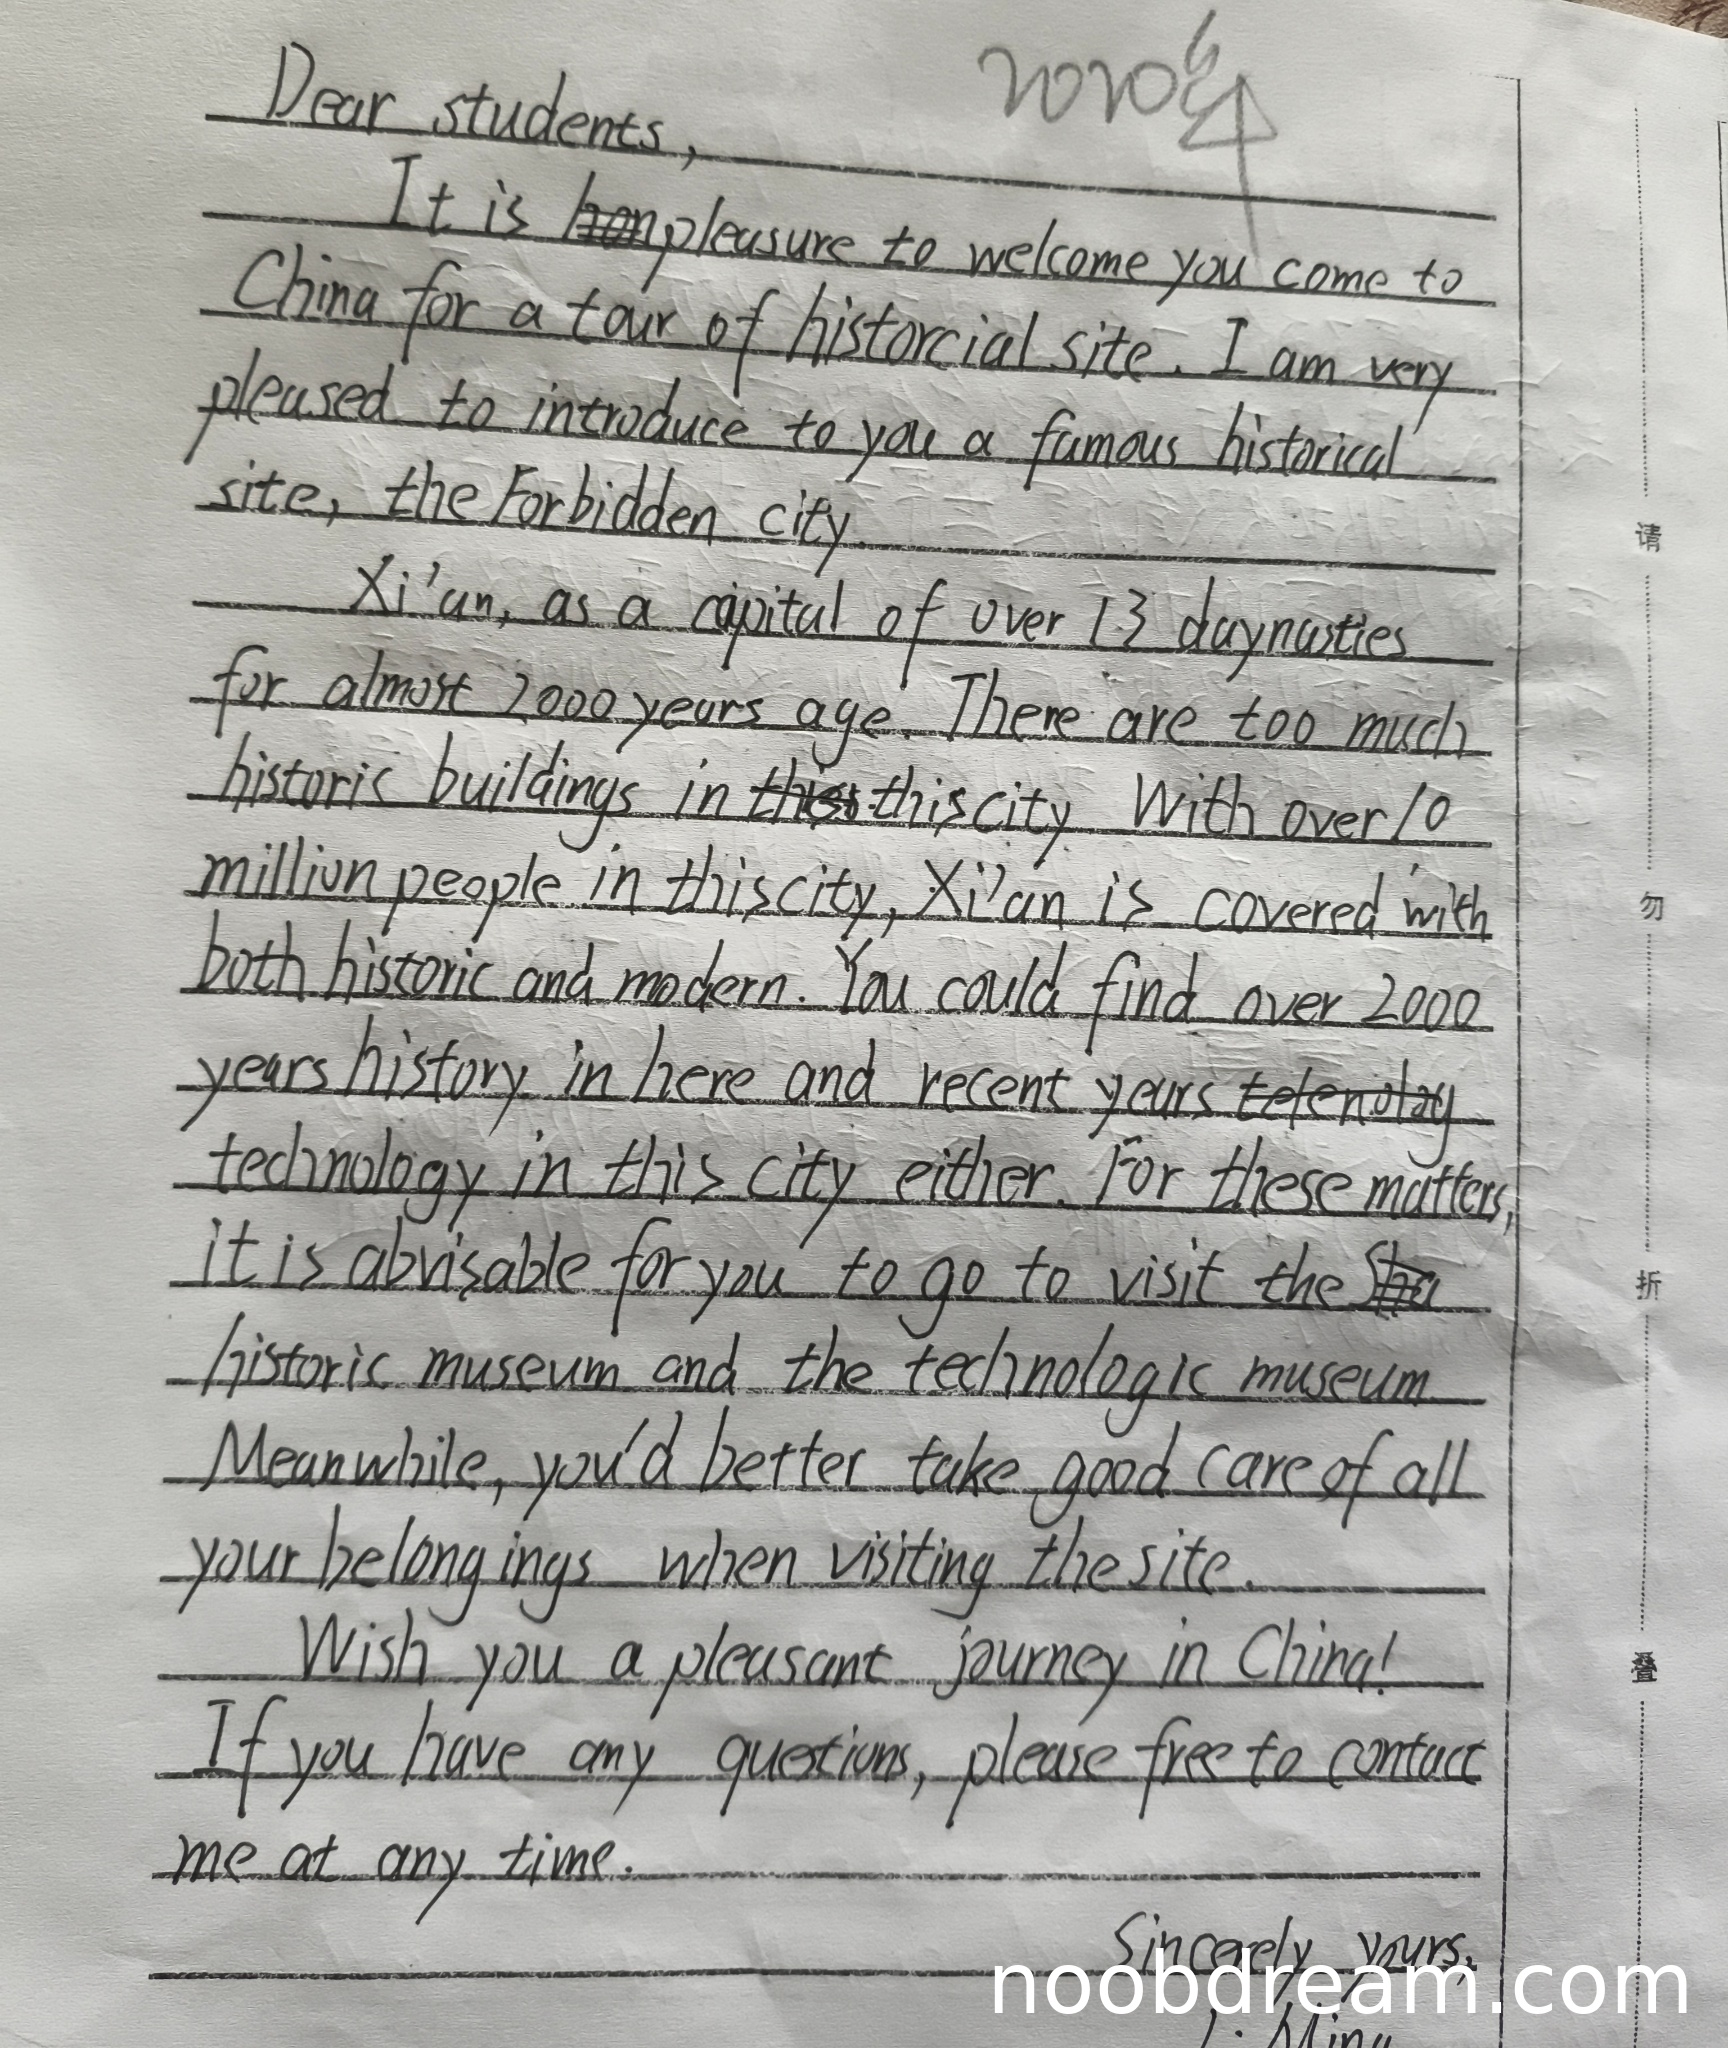 2020年
Dear students,
It is pleasure to welcome you come to
China for a tour of historcial site. I am very
pleased to introduce to you a famous historical
site, the Forbidden city.
Xi'an, as a capital of over 13 daynasties
for almost 2000 years age. There are too much
historic buildings in this city. With over 10
million people in this city, Xi'an is covered with
both historic and modern. You could find over 2000
years history in here and recent years
technology in this city either. For these matters,
it is abvisable for you to go to visit the
historic museum and the technologic museum.
Meanwhile, you'd better take good care of all
your belongings when visiting the site.
Wish you a pleasant journey in China!
If you have any questions, please free to contact
me at any time.
Sincerely yours,
Li Ming
请
勿
折
叠
noobdream.com